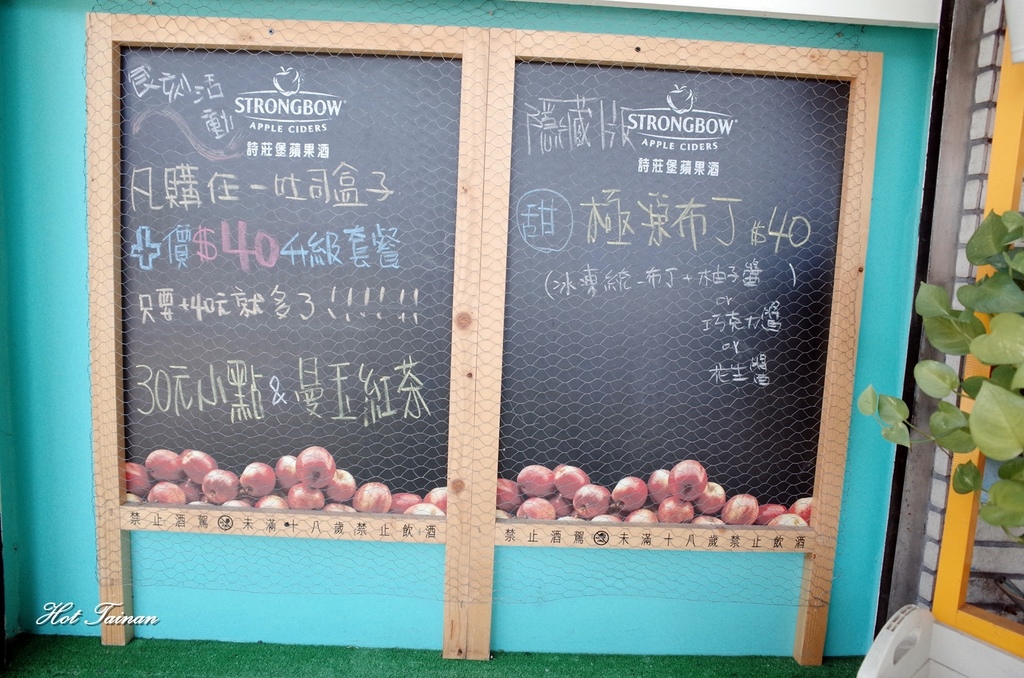 食妙活動
STRONGBOW
APPLE CIDERS
詩莊堡蘋果酒
凡購任一吐司盒子
+價$40升級套餐
只要+40元就多了!!!!!!
30元小點&曼玉紅茶
禁止酒駕 未滿十八歲禁止飲酒
隱藏版
STRONGBOW
APPLE CIDERS
詩莊堡蘋果酒
甜 極菓布丁 $40
(冰凍統一布丁+柚子醬)
or
巧克力醬
or
花生醬
禁止酒駕 未滿十八歲禁止飲酒
Hot Tainan